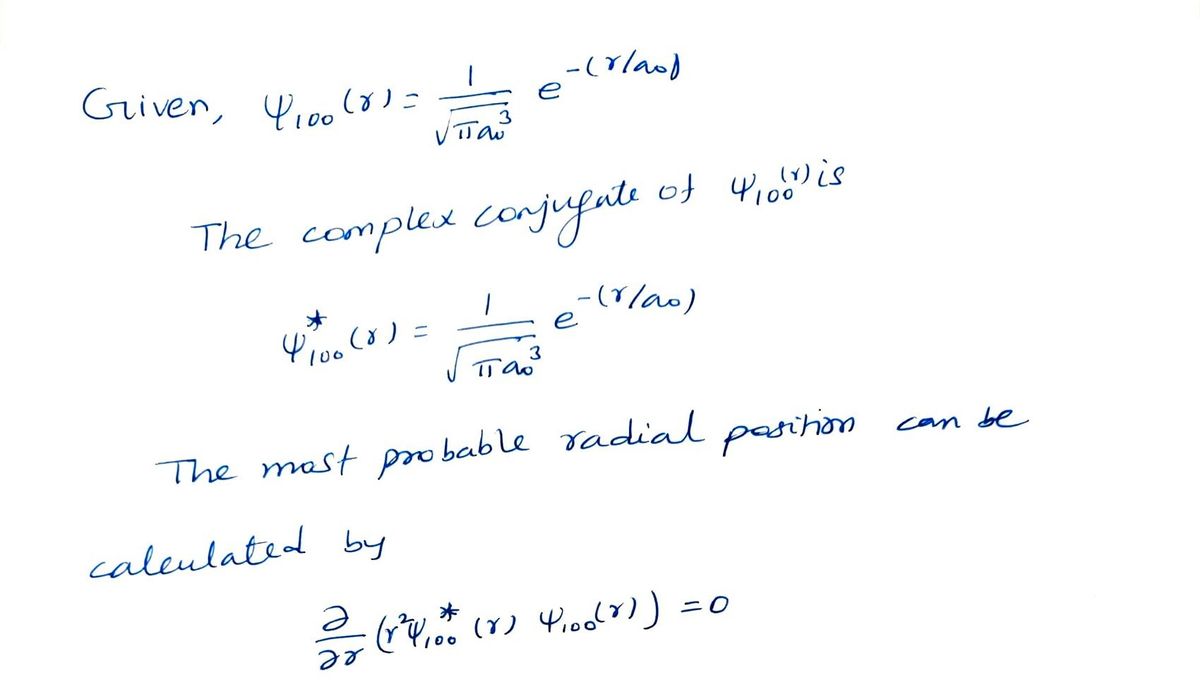 Given, ψ₁₀₀(r) = 1/√(πa₀³) e^-(r/a₀)
The complex conjugate of ψ₁₀₀(r) is
ψ*₁₀₀(r) = 1/√(πa₀³) e^-(r/a₀)
The most probable radial position can be
calculated by
∂/∂r (r²ψ₁₀₀*(r) ψ₁₀₀(r)) = 0